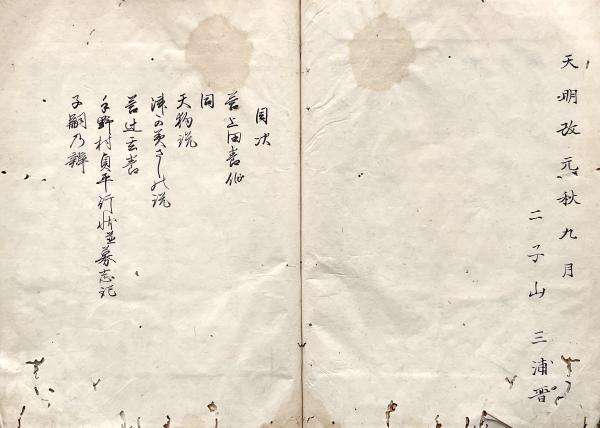 天明改元秋九月
二子山 三浦晋
目次
答上田養伯
同
天物説
の説
答辻玄養
野村貞平行状並墓志記
子嗣乃辨